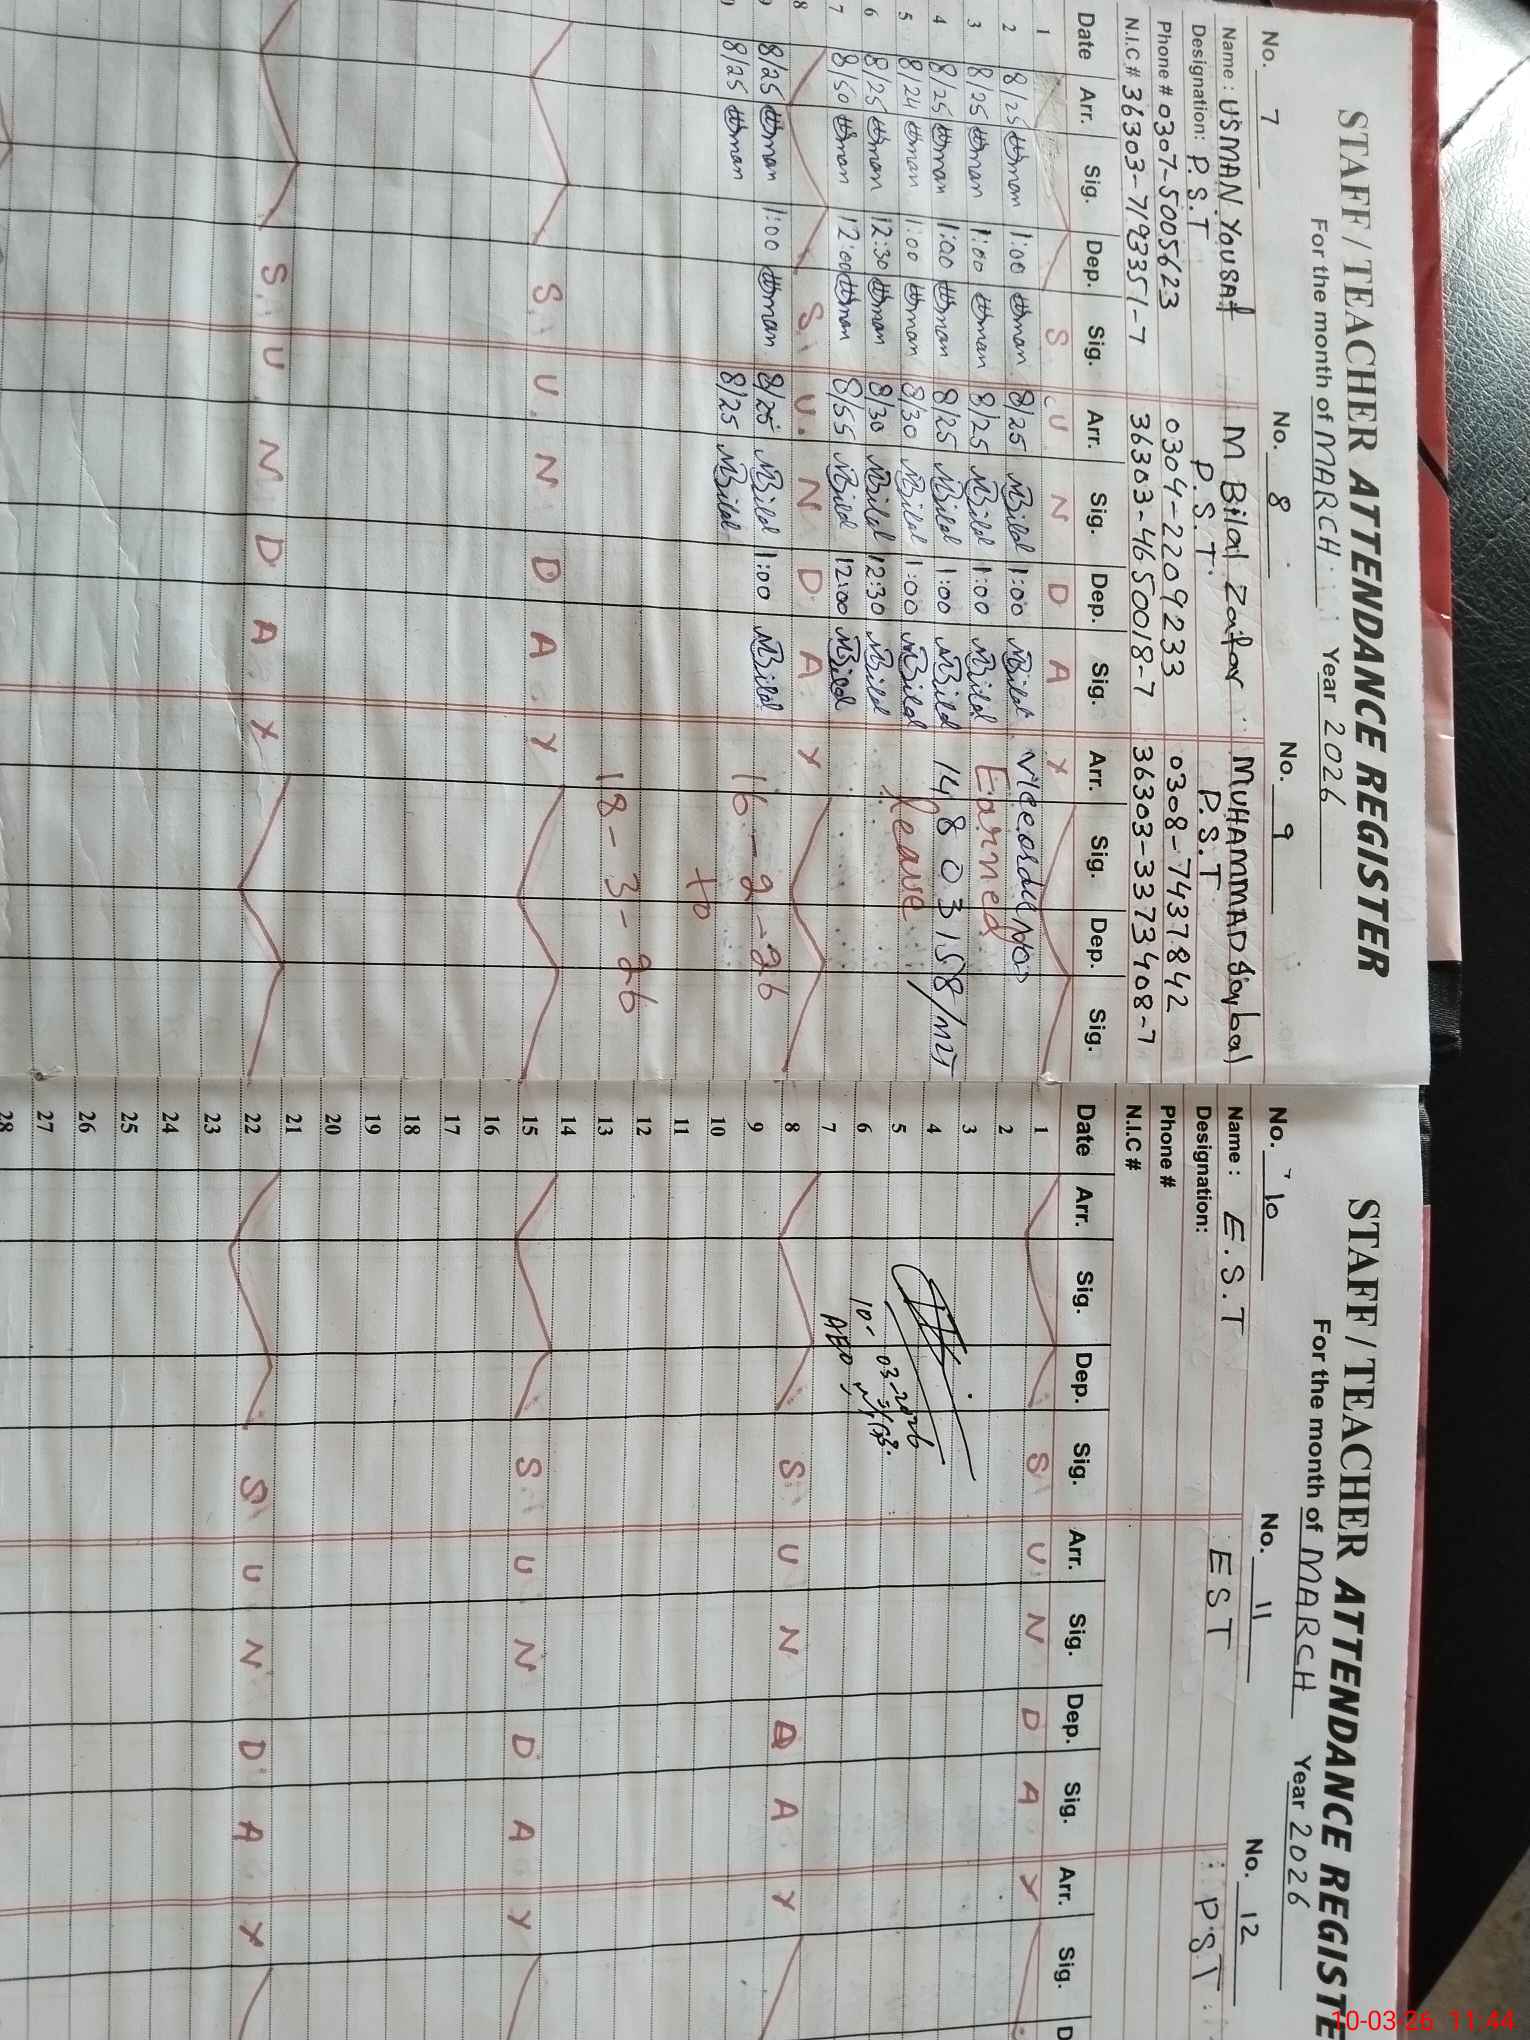 STAFF / TEACHER ATTENDANCE REGISTER
For the month of MARCH Year 2026
No. 7 No. 8 No. 9
Name : USMAN YOUSAF M Bilal Zafar MUHAMMAD
Designation: P.S.T P.S.T P.S.T
Phone # 0307-5005623 0304-2209233 0308-7437842
N.I.C # 36303-7193351-7 36303-4650018-7 36303-3373408-7
Date Arr. Sig. Dep. Sig. Arr. Sig. Dep. Sig. Arr. Sig. Dep. Sig.
1 S U N D A Y
2 8/25 Usman 1:00 Usman 8/25 MBilal 1:00 MBilal
3 8/25 Usman 1:00 Usman 8/25 MBilal 1:00 MBilal Earned
4 8/25 Usman 1:00 Usman 8/25 MBilal 1:00 MBilal
5 8/24 Usman 1:00 Usman 8/30 MBilal 1:00 MBilal leave
6 8/25 Usman 12:30 Usman 8/30 MBilal 12:30 MBilal
7 8/50 Usman 12:00 Usman 8/55 MBilal 12:00 MBilal
8 S U N D A Y
9 8/25 Usman 1:00 Usman 8/25 MBilal 1:00 MBilal 16-2-26
8/25 Usman 8/25 MBilal
to
18-3-26
S U N D A Y
S U N D A Y
STAFF / TEACHER ATTENDANCE REGISTE
For the month of MARCH Year 2026
No. 10 No. 11 No. 12
Name : E.S.T EST P.S.T
Designation:
Phone #
N.I.C #
Date Arr. Sig. Dep. Sig. Arr. Sig. Dep. Sig. Arr. Sig. D
1 S U N D A Y
2
3
4
5
6 10-03-2026
7 AEO
8 S U N D A Y
9
10
11
12
13
14
15 S U N D A Y
16
17
18
19
20
21
22 S U N D A Y
23
24
25
26
27
28
10-03-26 11:44